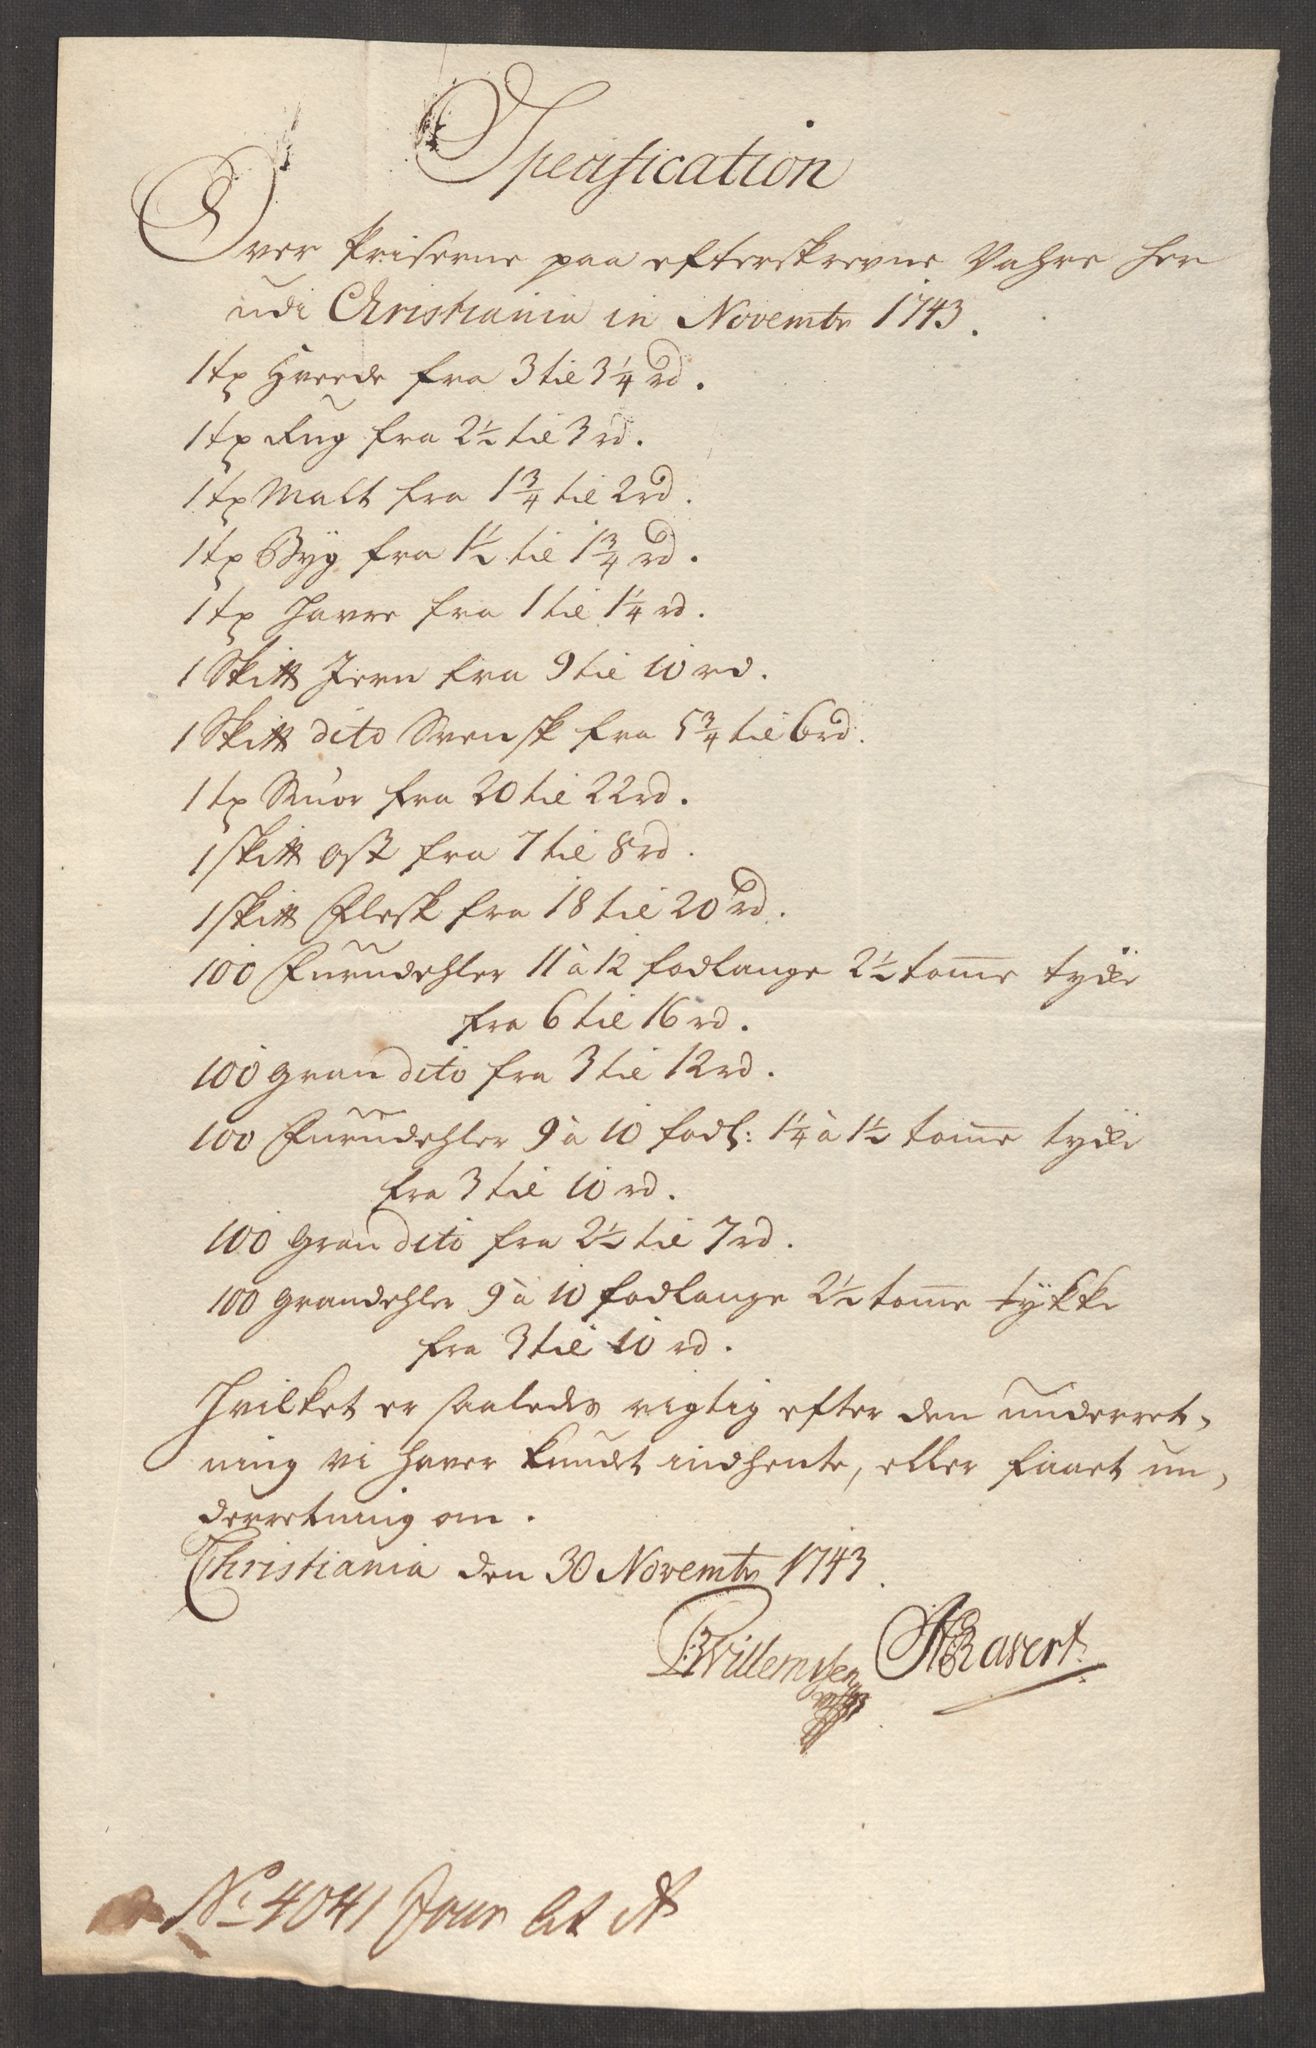 Specification
Over Priserne paa efterskrevne Vahre her
udi Christiania in Novembr 1743.
1 tp Hveede fra 3 til 3¼ rd.
1 tp Rug fra 2½ til 3 rd.
1 tp Malt fra 1¾ til 2 rd.
1 tp Byg fra 1½ til 1¾ rd.
1 tp Havre fra 1 til 1¼ rd.
1 Skitt Jern fra 9 til 10 rd.
1 Skitt dito Svensk fra 5¾ til 6 rd.
1 tp Smør fra 20 til 22 rd.
1 skitt Ost fra 7 til 8 rd.
1 skitt Flesk fra 18 til 20 rd.
100 Furudehler 11 à 12 fodlange 2½ tomme tycke
fra 6 til 16 rd.
100 gran dito fra 3 til 12 rd.
100 Furudehler 9 à 10 fodl: 1¼ à 1½ tomme tycke
fra 3 til 10 rd.
100 Gran dito fra 2½ til 7 rd.
100 grandehler 9 à 10 fodlange 2½ tomme tykke
fra 3 til 10 rd.
Hvilket er saaledes rigtig efter den underret-
ning vi haver kundet indhente, eller faaet un-
derretning om.
Christiania den 30 Novembr 1743.
Willemsen Ravert
No 4041 Jour Lit A